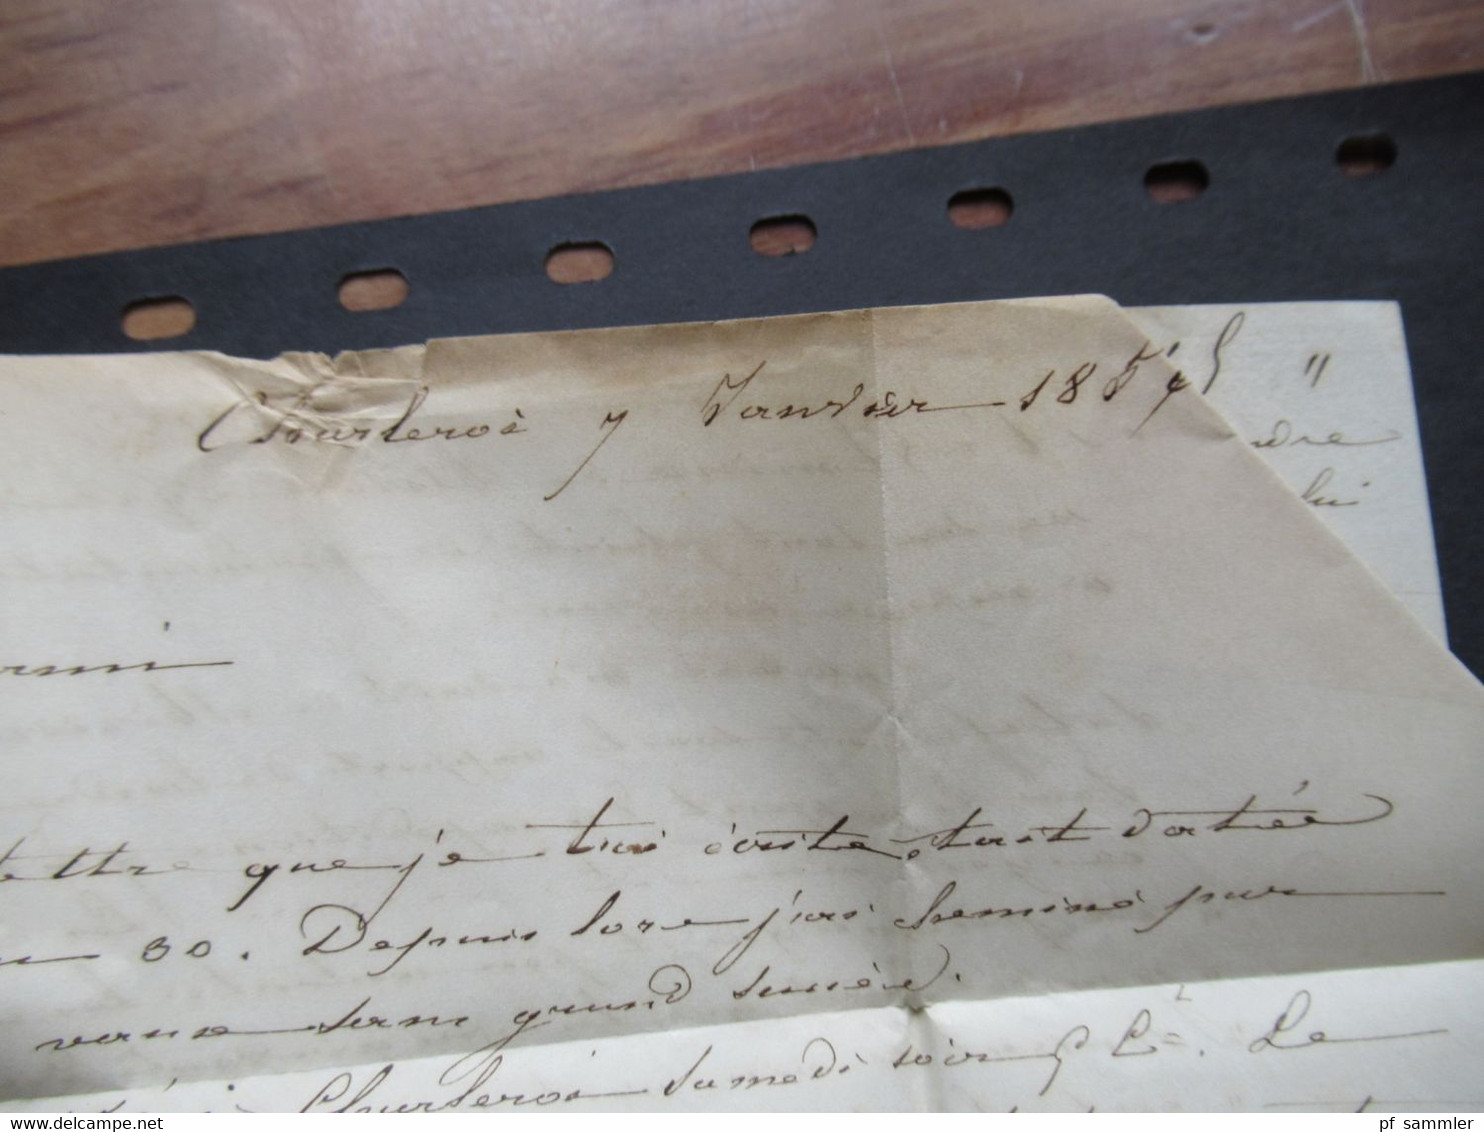 Charleroi 7 Janvier 185
"
dre
lui
ttre que j'e t'ai écrite, était datée
30. Depuis lors j'ai cheminé par
sans grand succès.
Charleroi Samedi soir 9 h. Le
© www.delcampe.net
pf_sammler